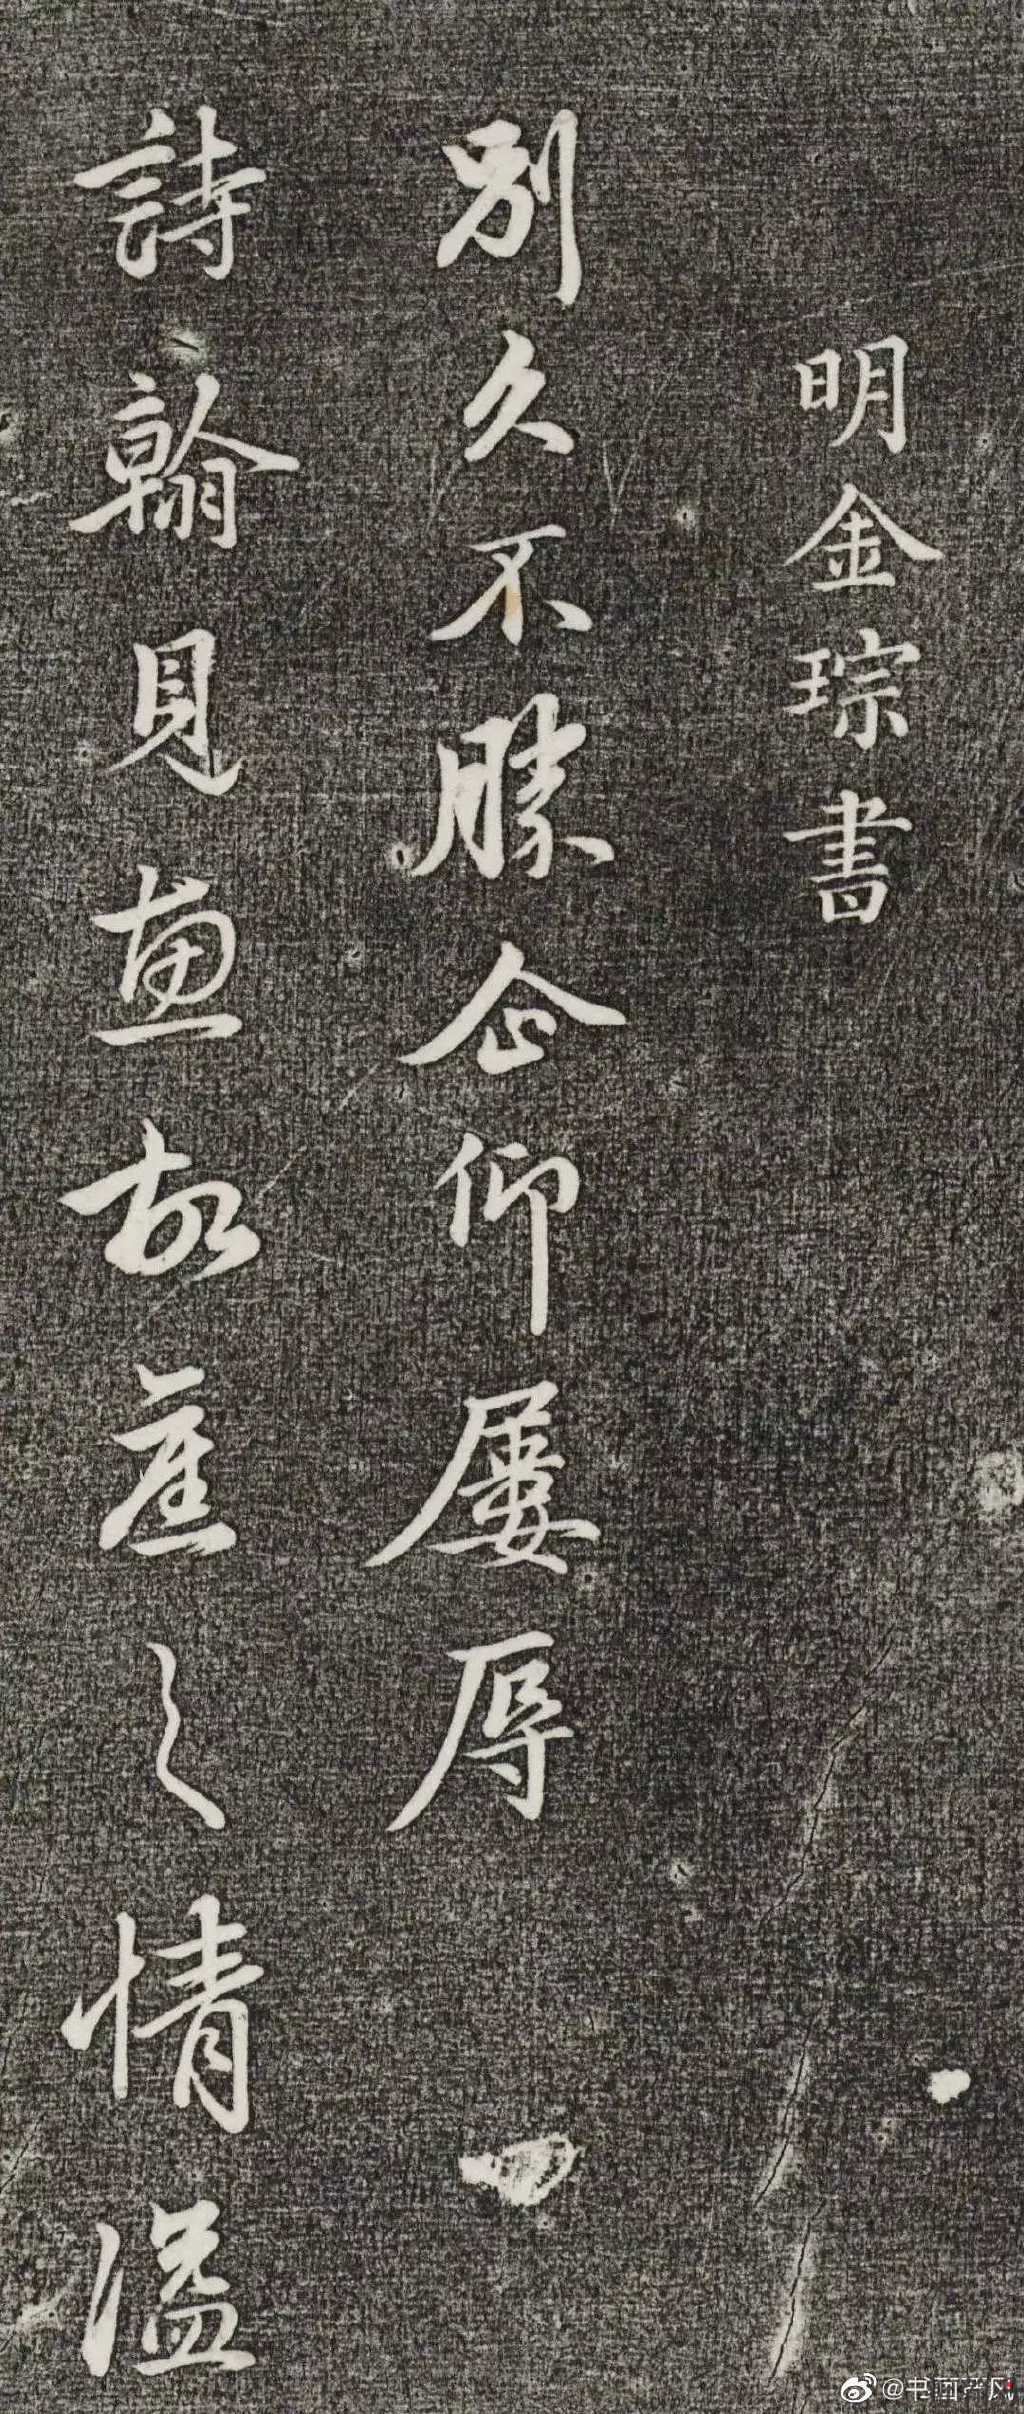 明金琮書
別久不勝企仰屢辱
詩翰見惠故舊之情溢
@书画产风